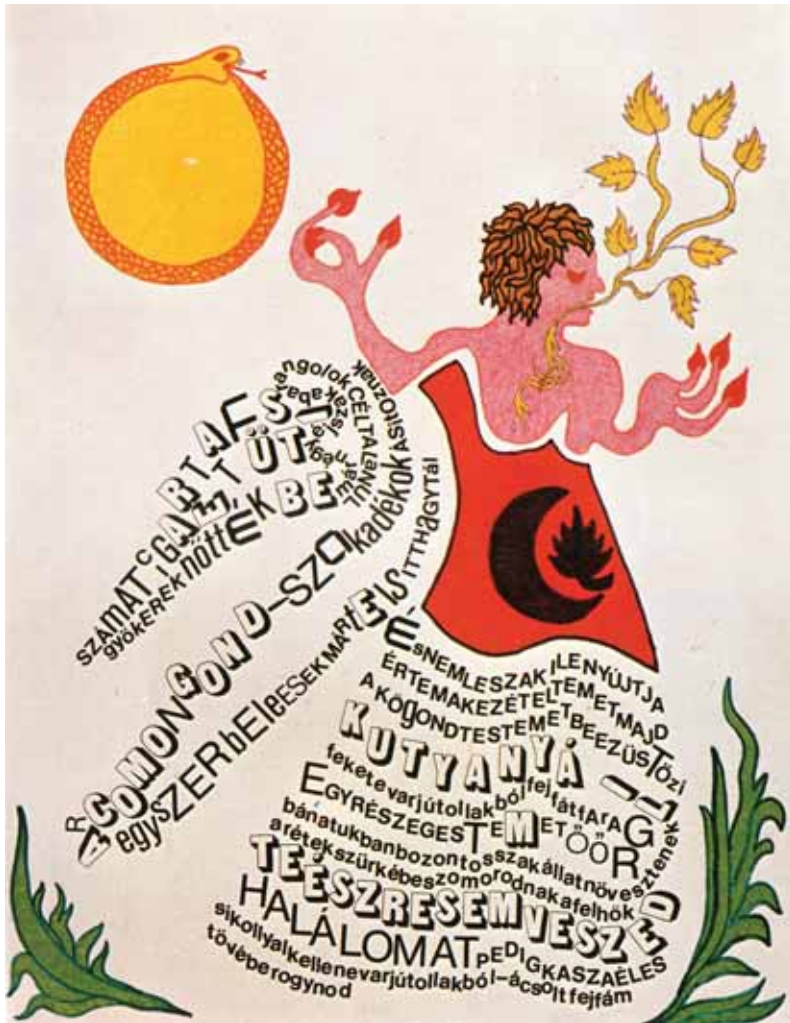 gyökEREKnőttÉKBE
CÉLTALANUL
ARCOMONGOND-SZAkadékokÁSÍTOZNAK
egySZERbEleeESEKMÁRtEISITTHAGYTÁl
ÉsNEMLESZAKILENYÚJTJA
ÉRTEMAKEZÉTELTEMETMAJD
AKÖgONDTESTEMETBEEZÜSTÖzi
KUTYANYÁL
feketevarjútollakbólfejfátfARAG
EGYRÉSZEGESTEMETŐŐR
bánatukbanbozontosszakállatnövesztenek
arétekszürkébeszomorodnakafelhők
TEÉSZRESEMVESZED
HALÁLOMATPEDIGKASZAÉLES
sikollyalkellenevarjútollakból-ácsoltfejfám
tövéberogynod